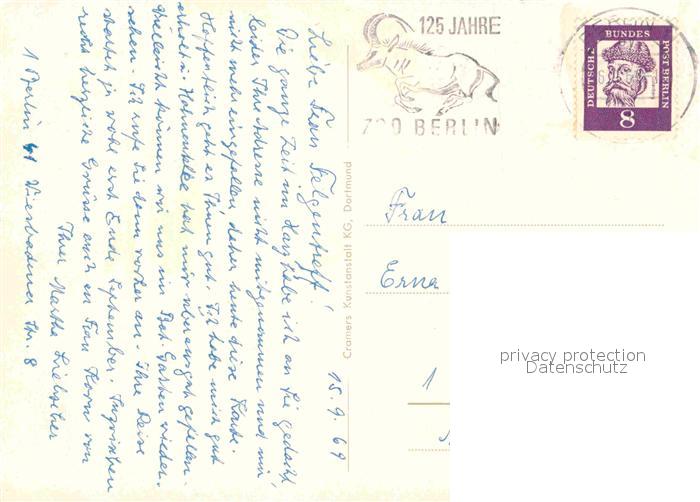 125 JAHRE
ZOO BERLIN
DEUTSCHE BUNDES POST BERLIN
8
Cramers Kunstanstalt KG, Dortmund
15.9.69
Liebe Frau Felgentreff!
Die ganze Zeit im Harz habe ich an Sie gedacht,
leider Ihre Adresse nicht mitgenommen und mir
nicht mehr eingefallen daher heute diese Karte.
Hoffentlich geht es Ihnen gut. Ich habe mich gut
erholt in Hohne hat mir gefallen.
Vielleicht können wir uns im Bot. Garten wieder-
sehen. Ich rufe Sie denn vorher an. Ihre Reise
startet ja wohl erst Ende September. Inzwischen
recht herzliche Grüsse auch an Frau Korn von
Ihrer Martha
1 Berlin 41 Wiesbadener Str. 8
Frau
Erna
1
privacy protection
Datenschutz